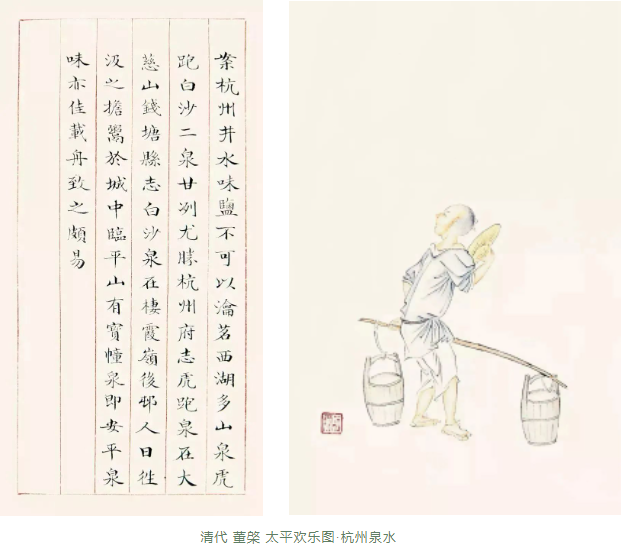 案杭州井水味鹽不可以瀹茗西湖多山泉虎
跑白沙二泉甘冽尤勝杭州府志虎跑泉在大
慈山錢塘縣志白沙泉在棲霞嶺後邨人日徃
汲之擔鬻於城中臨平山有寳幢泉即安平泉
味亦佳載舟致之頗易
清代 董棨 太平欢乐图·杭州泉水